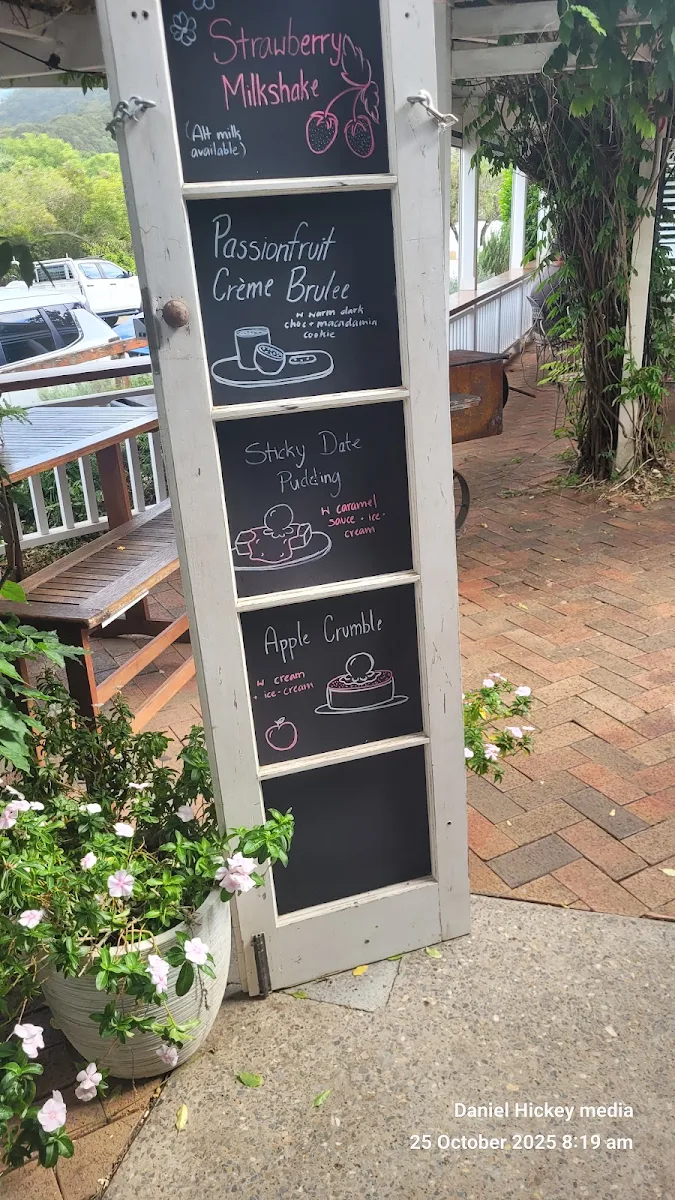 Strawberry
Milkshake
(Alt milk
available)
Passionfruit
Crème Brulee
w warm dark
choc + macadamia
cookie
Sticky Date
Pudding
w caramel
sauce + ice-
cream
Apple Crumble
w cream
+ ice-cream
Daniel Hickey media
25 October 2025 8:19 am